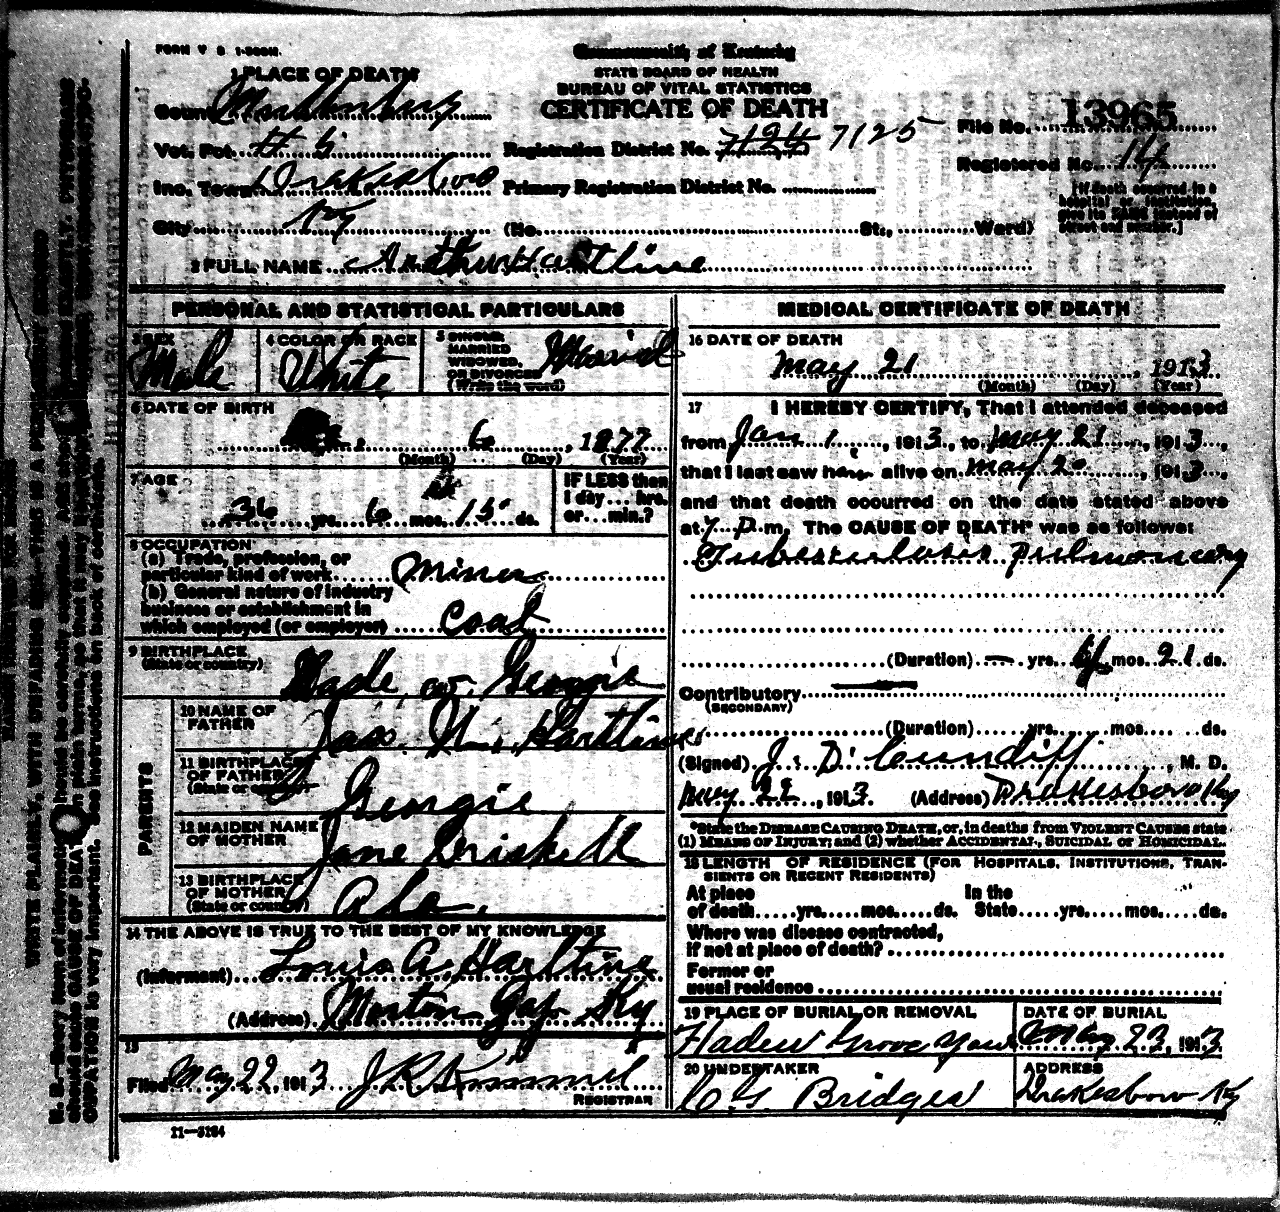 FORM V S 1-500M.
Commonwealth of Kentucky
STATE BOARD OF HEALTH
BUREAU OF VITAL STATISTICS
CERTIFICATE OF DEATH
1 PLACE OF DEATH
County Muhlenberg
Vot. Pct. # 5
Registration District No. 7124 7125
File No. 13965
Registered No. 14
Inc. Town Drakesboro
Primary Registration District No.
City Ky
(No. St., Ward)
[If death occurred in a hospital or institution, give its NAME instead of street and number.]
2 FULL NAME Arthur Hartline
PERSONAL AND STATISTICAL PARTICULARS
3 SEX
Male
4 COLOR OR RACE
White
5 SINGLE MARRIED WIDOWED, OR DIVORCED (Write the word)
Married
6 DATE OF BIRTH
6, 1877
(Month) (Day) (Year)
7 AGE
36 yrs. 6 mos. 15 ds.
IF LESS than 1 day... hrs. or... min.?
8 OCCUPATION
(a) Trade, profession, or
particular kind of work Miner
(b) General nature of industry
business or establishment in
which employed (or employer) Coal
9 BIRTHPLACE
(State or country)
Dade co. Georgie
PARENTS
10 NAME OF FATHER
Jas. N. Hartline
11 BIRTHPLACE OF FATHER
(State or country)
Georgie
12 MAIDEN NAME OF MOTHER
Jane Driskell
13 BIRTHPLACE OF MOTHER
(State or country)
Ala.
14 THE ABOVE IS TRUE TO THE BEST OF MY KNOWLEDGE
(Informant) Louis A. Hartline
(Address) Morton Gap Ky
15
Filed May 22, 1913 J. R. Kimmel
REGISTRAR
11—3184
MEDICAL CERTIFICATE OF DEATH
16 DATE OF DEATH
May 21, 1913
(Month) (Day) (Year)
17 I HEREBY CERTIFY, That I attended deceased
from Jan 1, 1913, to May 21, 1913,
that I last saw him alive on May 20, 1913,
and that death occurred on the date stated above
at 7 P. m, The CAUSE OF DEATH* was as follows:
Tuberculosis pulmonary
(Duration) — yrs. 4 mos. 21 ds.
Contributory
(SECONDARY)
(Duration) yrs. mos. ds.
(Signed) J. D. Cundiff, M. D.
May 22, 1913. (Address) Drakesboro Ky
*State the DISEASE CAUSING DEATH, or, in deaths from VIOLENT CAUSES state
(1) MEANS OF INJURY; and (2) whether ACCIDENTAL, SUICIDAL or HOMICIDAL.
18 LENGTH OF RESIDENCE (FOR HOSPITALS, INSTITUTIONS, TRAN-
SIENTS OR RECENT RESIDENTS)
At place of death yrs. mos. ds. In the State yrs. mos. ds.
Where was disease contracted,
if not at place of death?
Former or
usual residence
19 PLACE OF BURIAL OR REMOVAL
Haden Grove yard
DATE OF BURIAL
May 23, 1913
20 UNDERTAKER
C. G. Bridges
ADDRESS
Drakesboro Ky
WRITE PLAINLY, WITH UNFADING INK—THIS IS A PERMANENT RECORD
N. B.—Every item of information should be carefully supplied. AGE should be stated EXACTLY. PHYSICIANS
should state CAUSE OF DEATH in plain terms, so that it may be properly classified.
CUPATION is very important. See instructions on back of certificate.